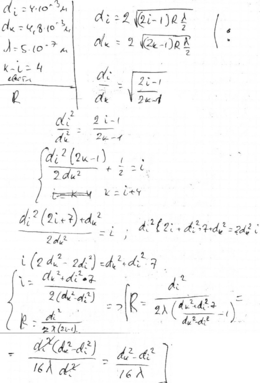 di = 4·10⁻³ м
dк = 4,8·10⁻³ м
λ = 5·10⁻⁷ м
к-i = 4
R
di = 2 √((2i-1)R λ/2)
dк = 2 √((2к-1)R λ/2) (:
di/dк = √((2i-1)/(2к-1))
di²/dк² = (2i-1)/(2к-1)
{ di²(2к-1)/(2dк²) + 1/2 = i
к = i+4
(di²(2i+7)+dк²)/(2dк²) = i ; di²·2i + di²·7 + dк² = 2dк² i
i(2dк² - 2di²) = dк² + di²·7
{ i = (dк² + di²·7)/(2(dк² - di²)) => [R = di²/(2λ((dк² + di²·7)/(dк² - di²) - 1)) =
R = di²/(2λ(2i-1))
= di²(dк² - di²)/(16λ di²) = (dк² - di²)/(16λ) ]